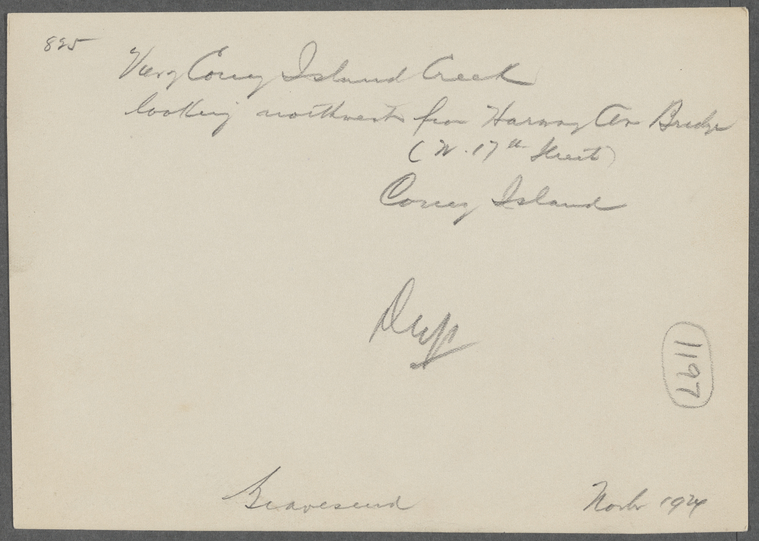 825
View Coney Island Creek
looking northwest from Harway Av Bridge
(W. 17th Street)
Coney Island
Dup
1197
Gravesend
Novbr 1924